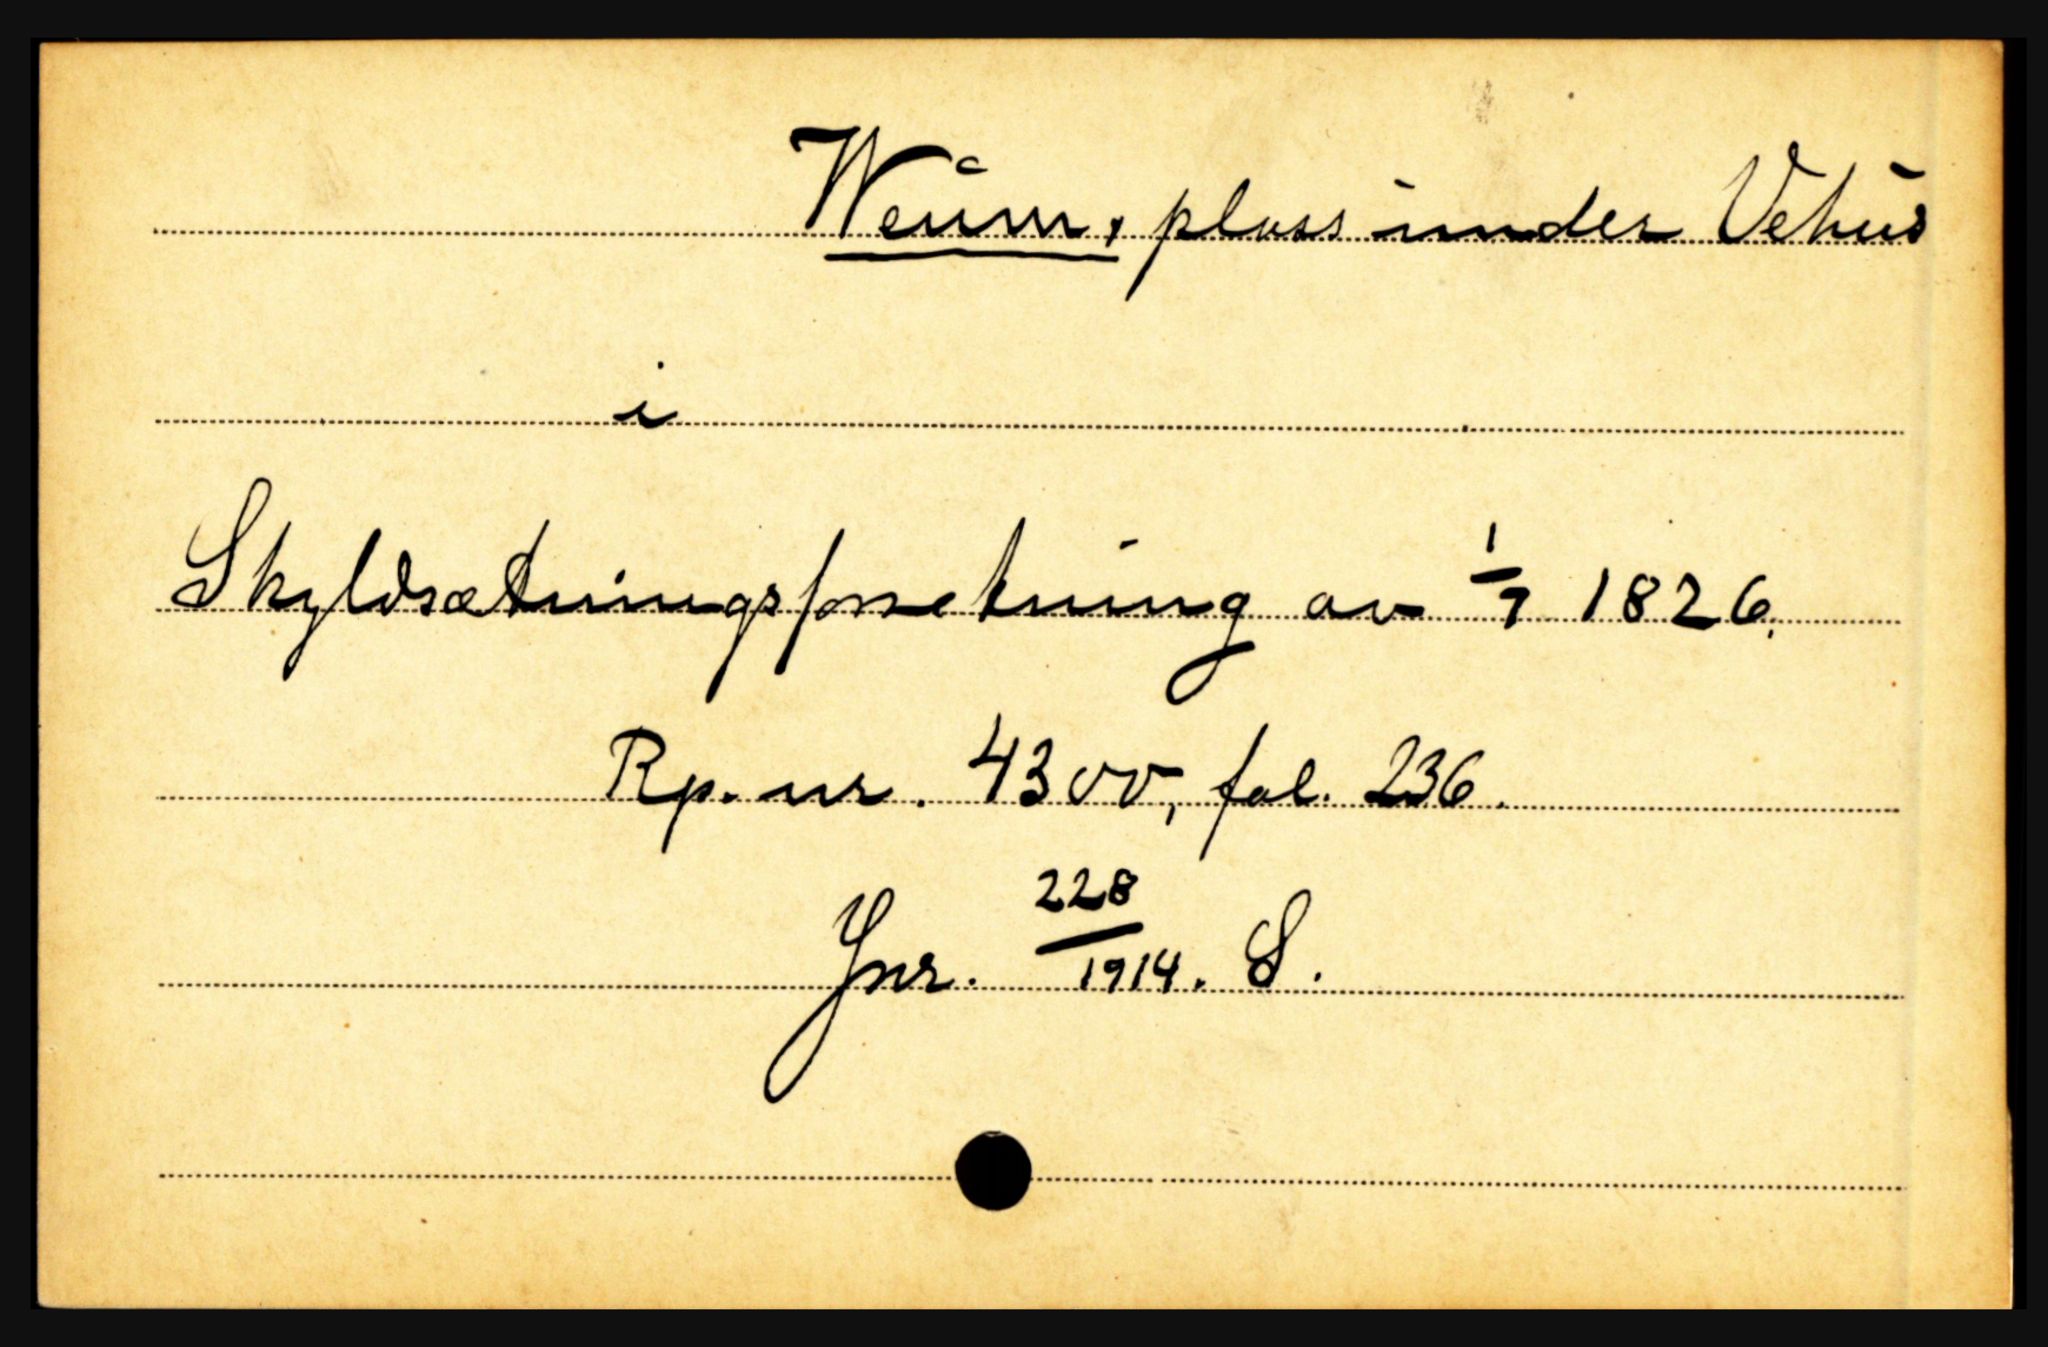 Weum, plass under Vehus
i
Skyldsætningsforretning av 1/9 1826.
Rp. nr. 4300, fol. 236.
Jnr. 228/1914. S.